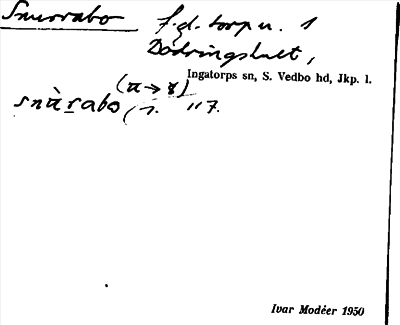 Snurrabo f.d. torp u. 1
Dödringshult,
Ingatorps sn, S. Vedbo hd, Jkp. l.
(a→
snàrabo
117.
Ivar Modéer 1950